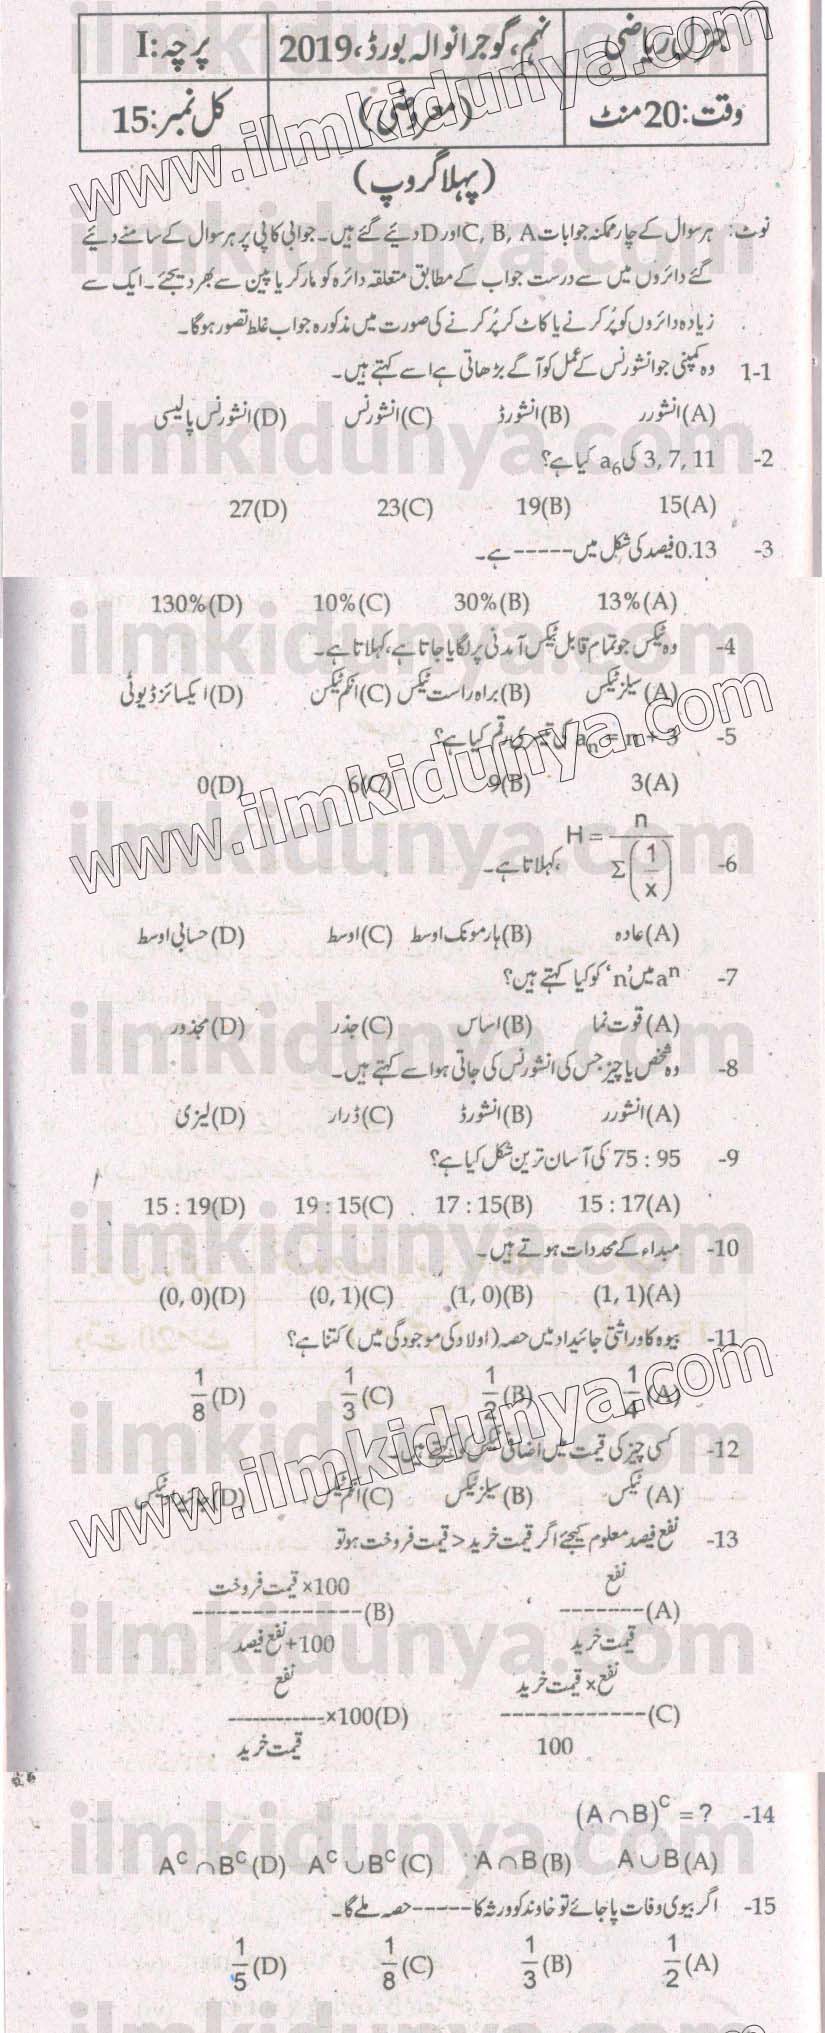 جنرل ریاضی نہم، گوجرانوالہ بورڈ، 2019 پرچہ: I
وقت: 20 منٹ (معروضی) کل نمبر: 15
(پہلا گروپ)
نوٹ: ہر سوال کے چار ممکنہ جوابات C, B, A اور D دیئے گئے ہیں۔ جوابی کاپی پر ہر سوال کے سامنے دیئے
گئے دائروں میں سے درست جواب کے مطابق متعلقہ دائرہ کو مارکر یا پین سے بھر دیجئے۔ ایک سے
زیادہ دائروں کو پُر کرنے یا کاٹ کر پُر کرنے کی صورت میں مذکورہ جواب غلط تصور ہوگا۔
1-1 وہ کمپنی جو انشورنس کے عمل کو آگے بڑھاتی ہے اسے کہتے ہیں۔
(A) انشورر (B) انشورڈ (C) انشورنس (D) انشورنس پالیسی
-2 3, 7, 11 کی a₆ کیا ہے؟
(A) 15 (B) 19 (C) 23 (D) 27
-3 0.13 فیصد کی شکل میں ----- ہے۔
(A) 13% (B) 30% (C) 10% (D) 130%
-4 وہ ٹیکس جو تمام قابل ٹیکس آمدنی پر لگایا جاتا ہے، کہلاتا ہے۔
(A) سیلز ٹیکس (B) براہ راست ٹیکس (C) انکم ٹیکس (D) ایکسائز ڈیوٹی
-5 aₙ = n + 3 کی تیسری رقم کیا ہے؟
(A) 3 (B) 9 (C) 6 (D) 0
-6 H = n / Σ(1/x) ،کہلاتا ہے۔
(A) عادہ (B) ہارمونک اوسط (C) اوسط (D) حسابی اوسط
-7 aⁿ میں 'n' کو کیا کہتے ہیں؟
(A) قوت نما (B) اساس (C) جذر (D) مجذور
-8 وہ شخص یا چیز جس کی انشورنس کی جاتی ہو اسے کہتے ہیں۔
(A) انشورر (B) انشورڈ (C) ڈرار (D) لیزی
-9 75 : 95 کی آسان ترین شکل کیا ہے؟
(A) 15 : 17 (B) 17 : 15 (C) 19 : 15 (D) 15 : 19
-10 مبداء کے محددات ہوتے ہیں۔
(A) (1, 1) (B) (1, 0) (C) (0, 1) (D) (0, 0)
-11 بیوہ کا وراثتی جائیداد میں حصہ (اولاد کی موجودگی میں) کتنا ہے؟
(A) 1/4 (B) 1/2 (C) 1/3 (D) 1/8
-12 کسی چیز کی قیمت میں اضافی ٹیکس کو کہتے ہیں۔
(A) ٹیکس (B) سیلز ٹیکس (C) انکم ٹیکس (D) ٹیکس
-13 نفع فیصد معلوم کیجئے اگر قیمت خرید < قیمت فروخت ہو تو
(A) نفع / قیمت خرید (B) قیمت فروخت ×100 / نفع فیصد +100
(C) نفع × قیمت خرید / 100 (D) نفع / قیمت خرید ×100
-14 (A∩B)ᶜ = ?
(A) A∪B (B) A∩B (C) Aᶜ∪Bᶜ (D) Aᶜ∩Bᶜ
-15 اگر بیوی وفات پا جائے تو خاوند کو ورثہ کا ----- حصہ ملے گا۔
(A) 1/2 (B) 1/3 (C) 1/8 (D) 1/5
www.ilmkidunya.com
ilmkidunya.com